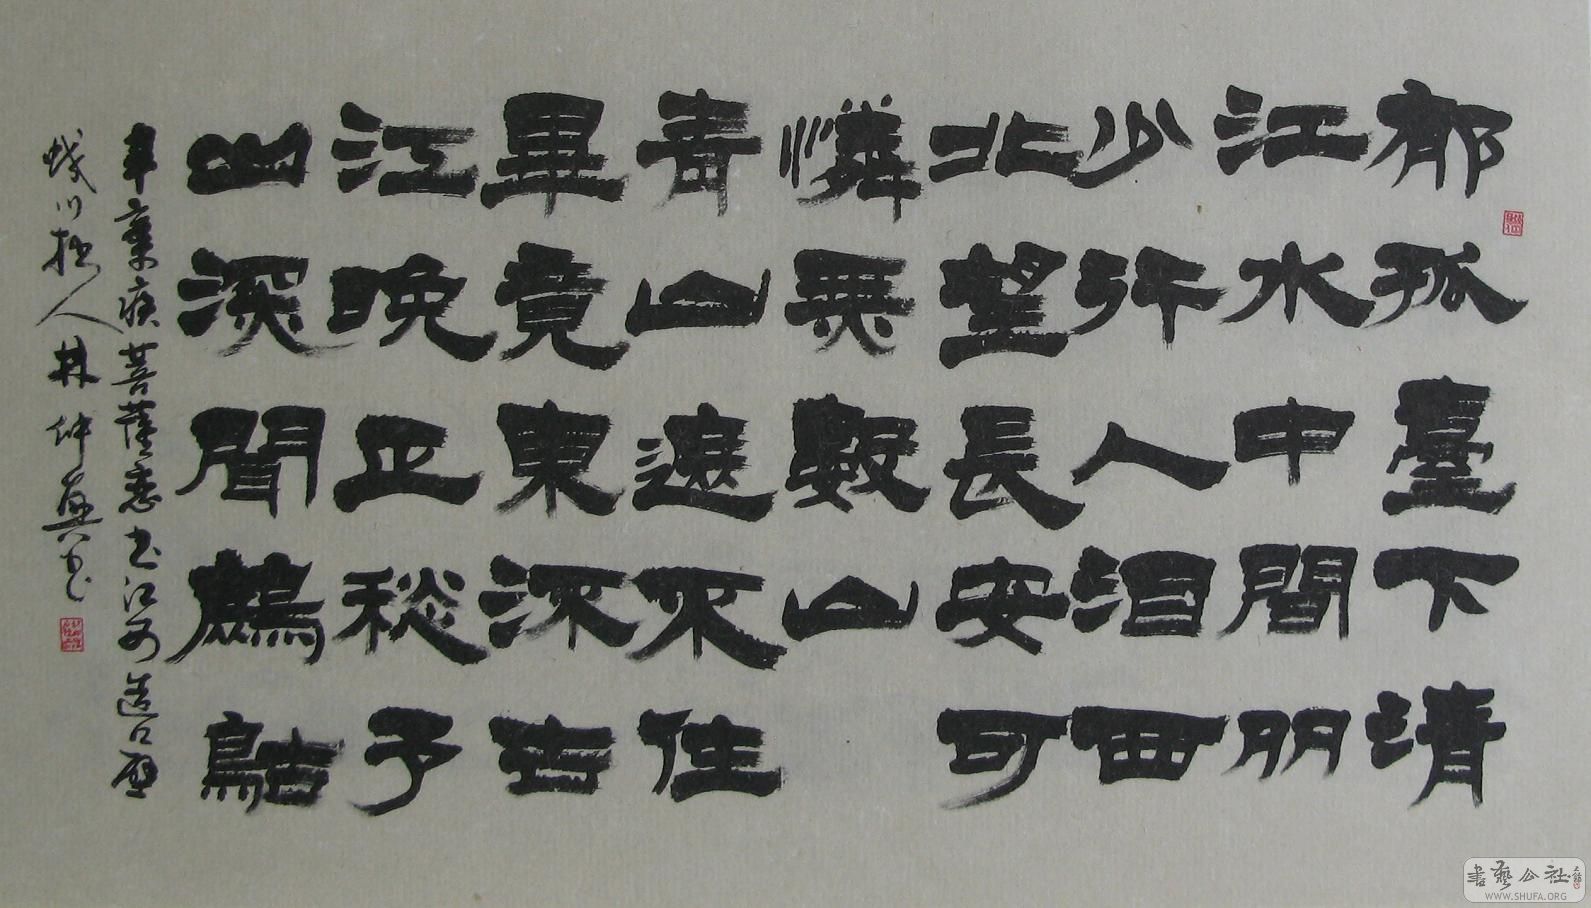 郁孤臺下清
江水中間多
少行人泪西
北望長安可
憐無數山
青山遮不住
畢竟東流去
江晚正愁予
山深聞鷓鴣
辛棄疾菩薩蠻書江西造口壁
蛟川拙人林仲興書
書藝公社
WWW.SHUFA.ORG